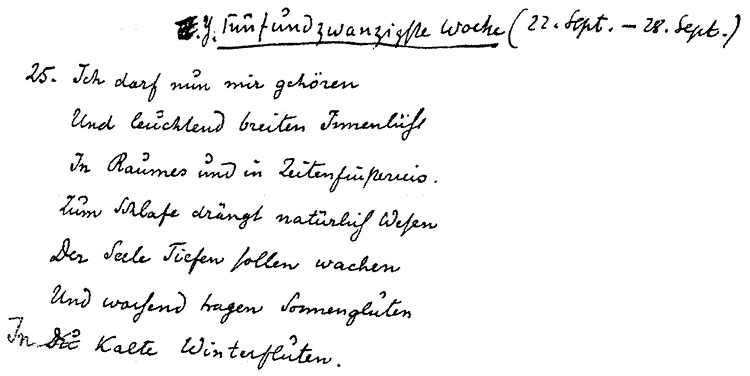 Y. Fünfundzwanzigste Woche (22. Sept. – 28. Sept.)
25. Ich darf nun mir gehören
Und leuchtend breiten Innenlicht
In Raumes und in Zeitenfinsternis.
Zum Schlafe drängt natürlich Wesen
Der Seele Tiefen sollen wachen
Und wachend tragen Sonnengluten
In Kalte Winterfluten.